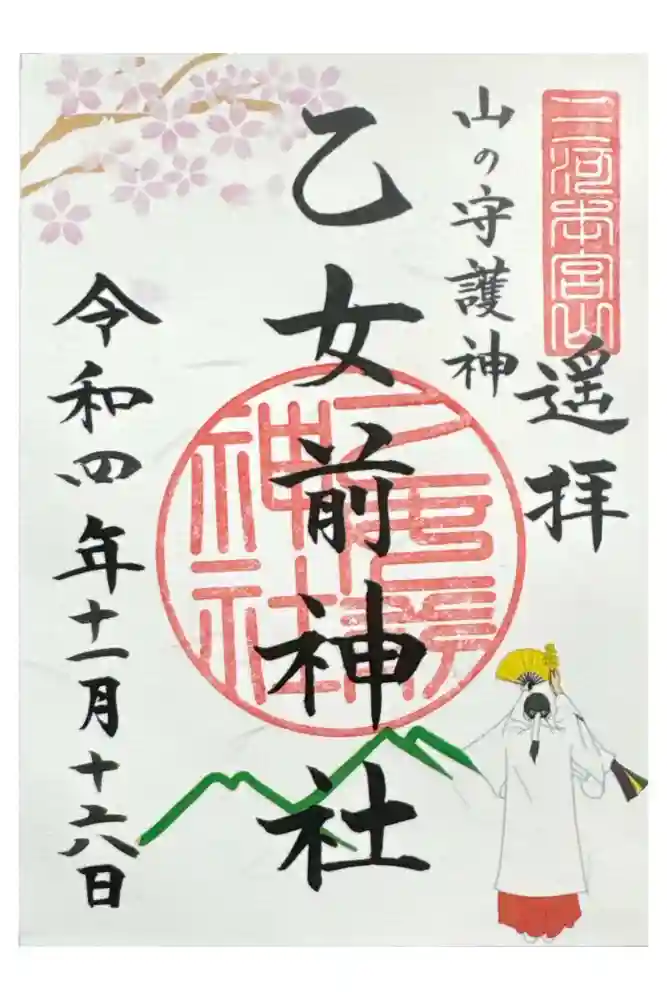 三河本宮山
遥拝
山の守護神
乙女前神社
令和四年十一月十六日